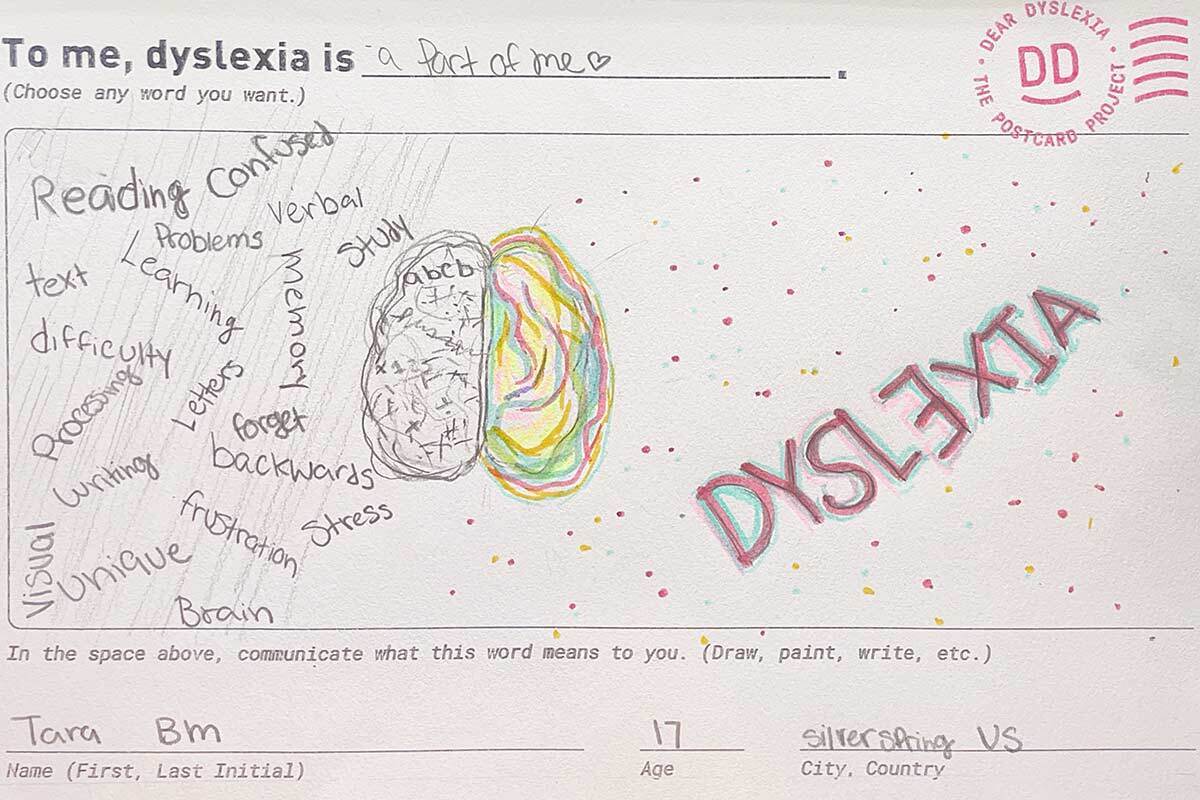 To me, dyslexia is a part of me♡.
(Choose any word you want.)
DEAR DYSLEXIA
DD
THE POSTCARD PROJECT
Reading
Confused
Verbal
Problems
Study
Learning
Memory
text
difficulty
Processing
Letters
forget
backwards
writing
frustration
Stress
Visual
Unique
Brain
abcb
DYSLƎXIA
In the space above, communicate what this word means to you. (Draw, paint, write, etc.)
Tara Bm
Name (First, Last Initial)
17
Age
silverspring US
City, Country